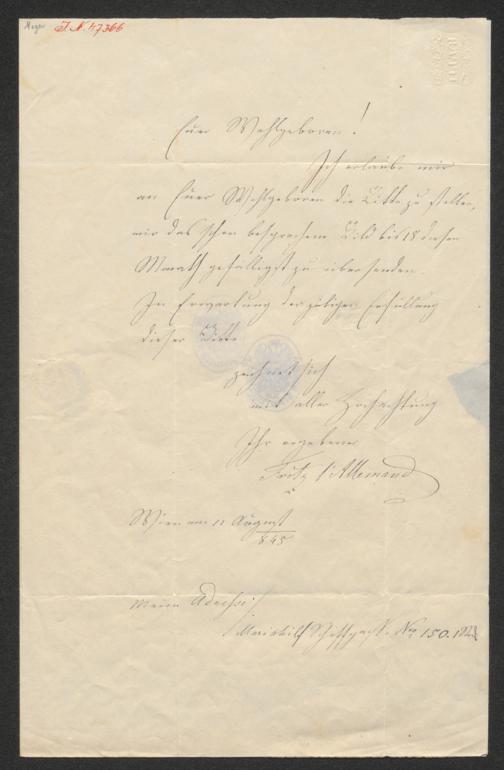 Mayer J.N. 47366
BATH
Euer Wohlgeboren!
Ich erlaube mir
an Euer Wohlgeboren die Bitte zu stellen,
mir das schon besprochene Bild bis 18 diesen
Monaths gefälligst zu übersenden.
In Erwartung der gütigen Erfüllung
dieser Bitte
zeichnet sich
mit aller Hochachtung
Ihr ergebener
Fritz l'Allemand
Wien am 11 August
845
Meine Adresse:
Mariahilf Schiffgasse No 150.